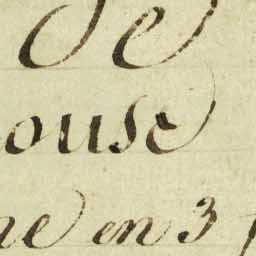 de
ouse
ne en 3